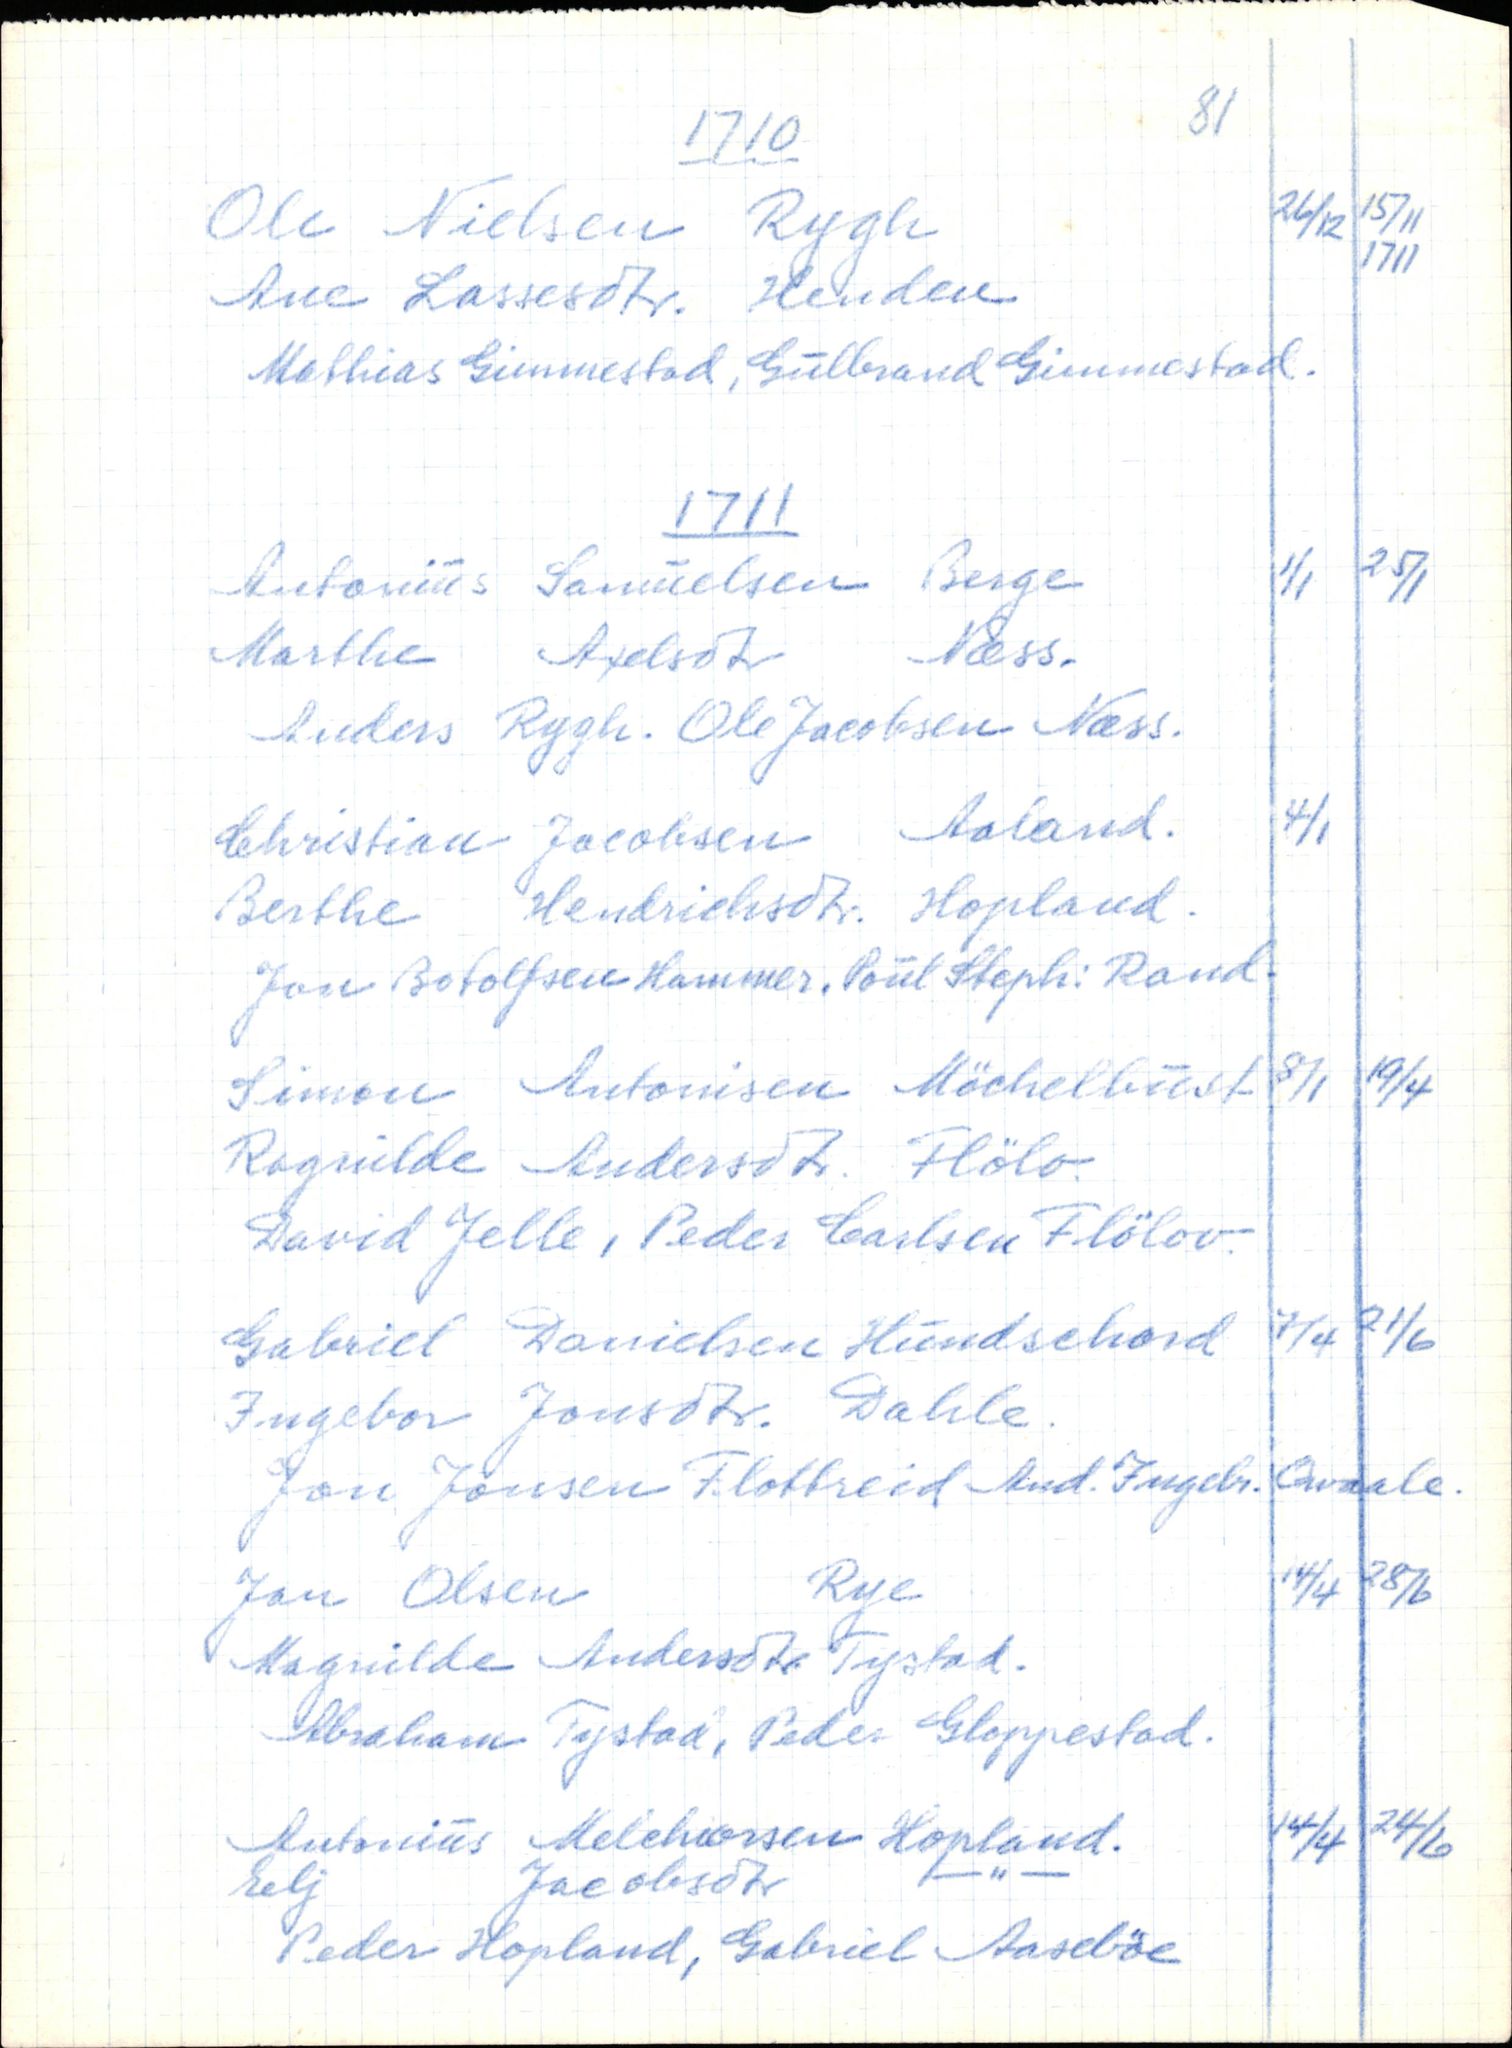 81
1710
Ole Nielsen Rygh 26/12 15/11
1711
Ane Lassesdtr. Henden
Mathias Gimmestad, Gūlbrand Gimmestad.
1711
Antoniūs Samūelsen Berge 1/1 25/1
Marthe Axelsdtr Næss.
Anders Rygh. Ole Jacobsen Næss.
Christian Jacobsen Aaland. 4/1
Berthe Hendrichsdtr. Hopland.
Jon Botolfsen Hammer. Poūl Steph: Rand.
Simon Antonisen Möchelbūst 8/1 19/4
Ragnilde Andersdtr. Flölo.
David Jelle, Peder Carlsen Flölov.
Gabriel Danielsen Hūndschord 7/4 21/6
Ingebor Jonsdtr. Dahle.
Jon Jonsen Flottreid And. Ingebr. Qvaale.
Jon Olsen Rye 14/4 28/6
Magnilde Andersdtr Tystad.
Abraham Tystad, Peder Gloppestad.
Antoniūs Melchiorsen Hopland. 14/4 24/6
Eelj Jacobsdtr — " —
Peder Hopland, Gabriel Aaseböe